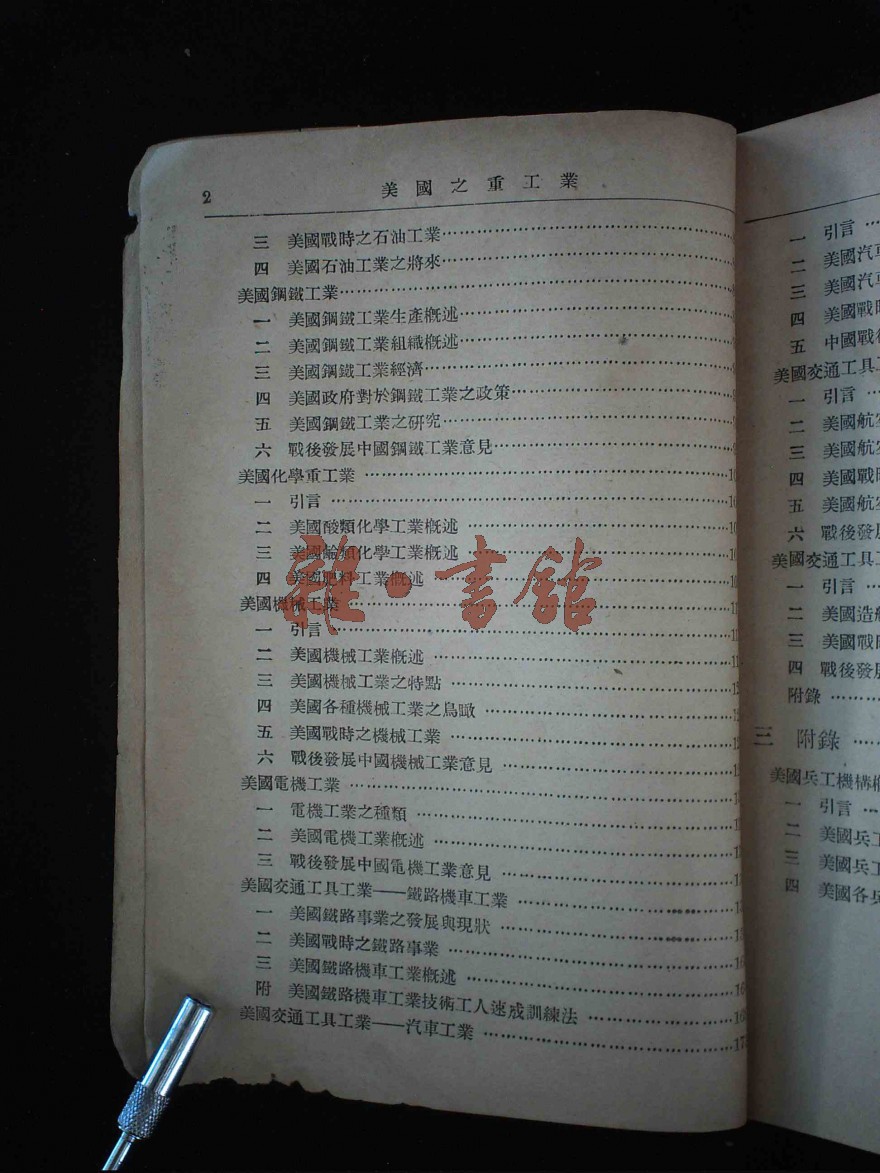 2 美國之重工業
三 美國戰時之石油工業
四 美國石油工業之將來
美國鋼鐵工業
一 美國鋼鐵工業生產概述
二 美國鋼鐵工業組織概述
三 美國鋼鐵工業經濟
四 美國政府對於鋼鐵工業之政策
五 美國鋼鐵工業之研究
六 戰後發展中國鋼鐵工業意見
美國化學重工業
一 引言
二 美國酸類化學工業概述
三 美國鹼類化學工業概述
四 美國肥料工業概述
美國機械工業
一 引言
二 美國機械工業概述
三 美國機械工業之特點
四 美國各種機械工業之鳥瞰
五 美國戰時之機械工業
六 戰後發展中國機械工業意見
美國電機工業
一 電機工業之種類
二 美國電機工業概述
三 戰後發展中國電機工業意見
美國交通工具工業——鐵路機車工業
一 美國鐵路事業之發展與現狀
二 美國戰時之鐵路事業
三 美國鐵路機車工業概述
附 美國鐵路機車工業技術工人速成訓練法
美國交通工具工業——汽車工業
雜·書館
一 引言
二 美國汽車
三 美國汽
四 美國戰時
五 中國戰後
美國交通工具工
一 引言
二 美國航空
三 美國航空
四 美國戰時
五 美國航空
六 戰後發展
美國交通工具工
一 引言
二 美國造船
三 美國戰時
四 戰後發展
附錄
三 附錄
美國兵工機構概
一 引言
二 美國兵工
三 美國兵工
四 美國各兵